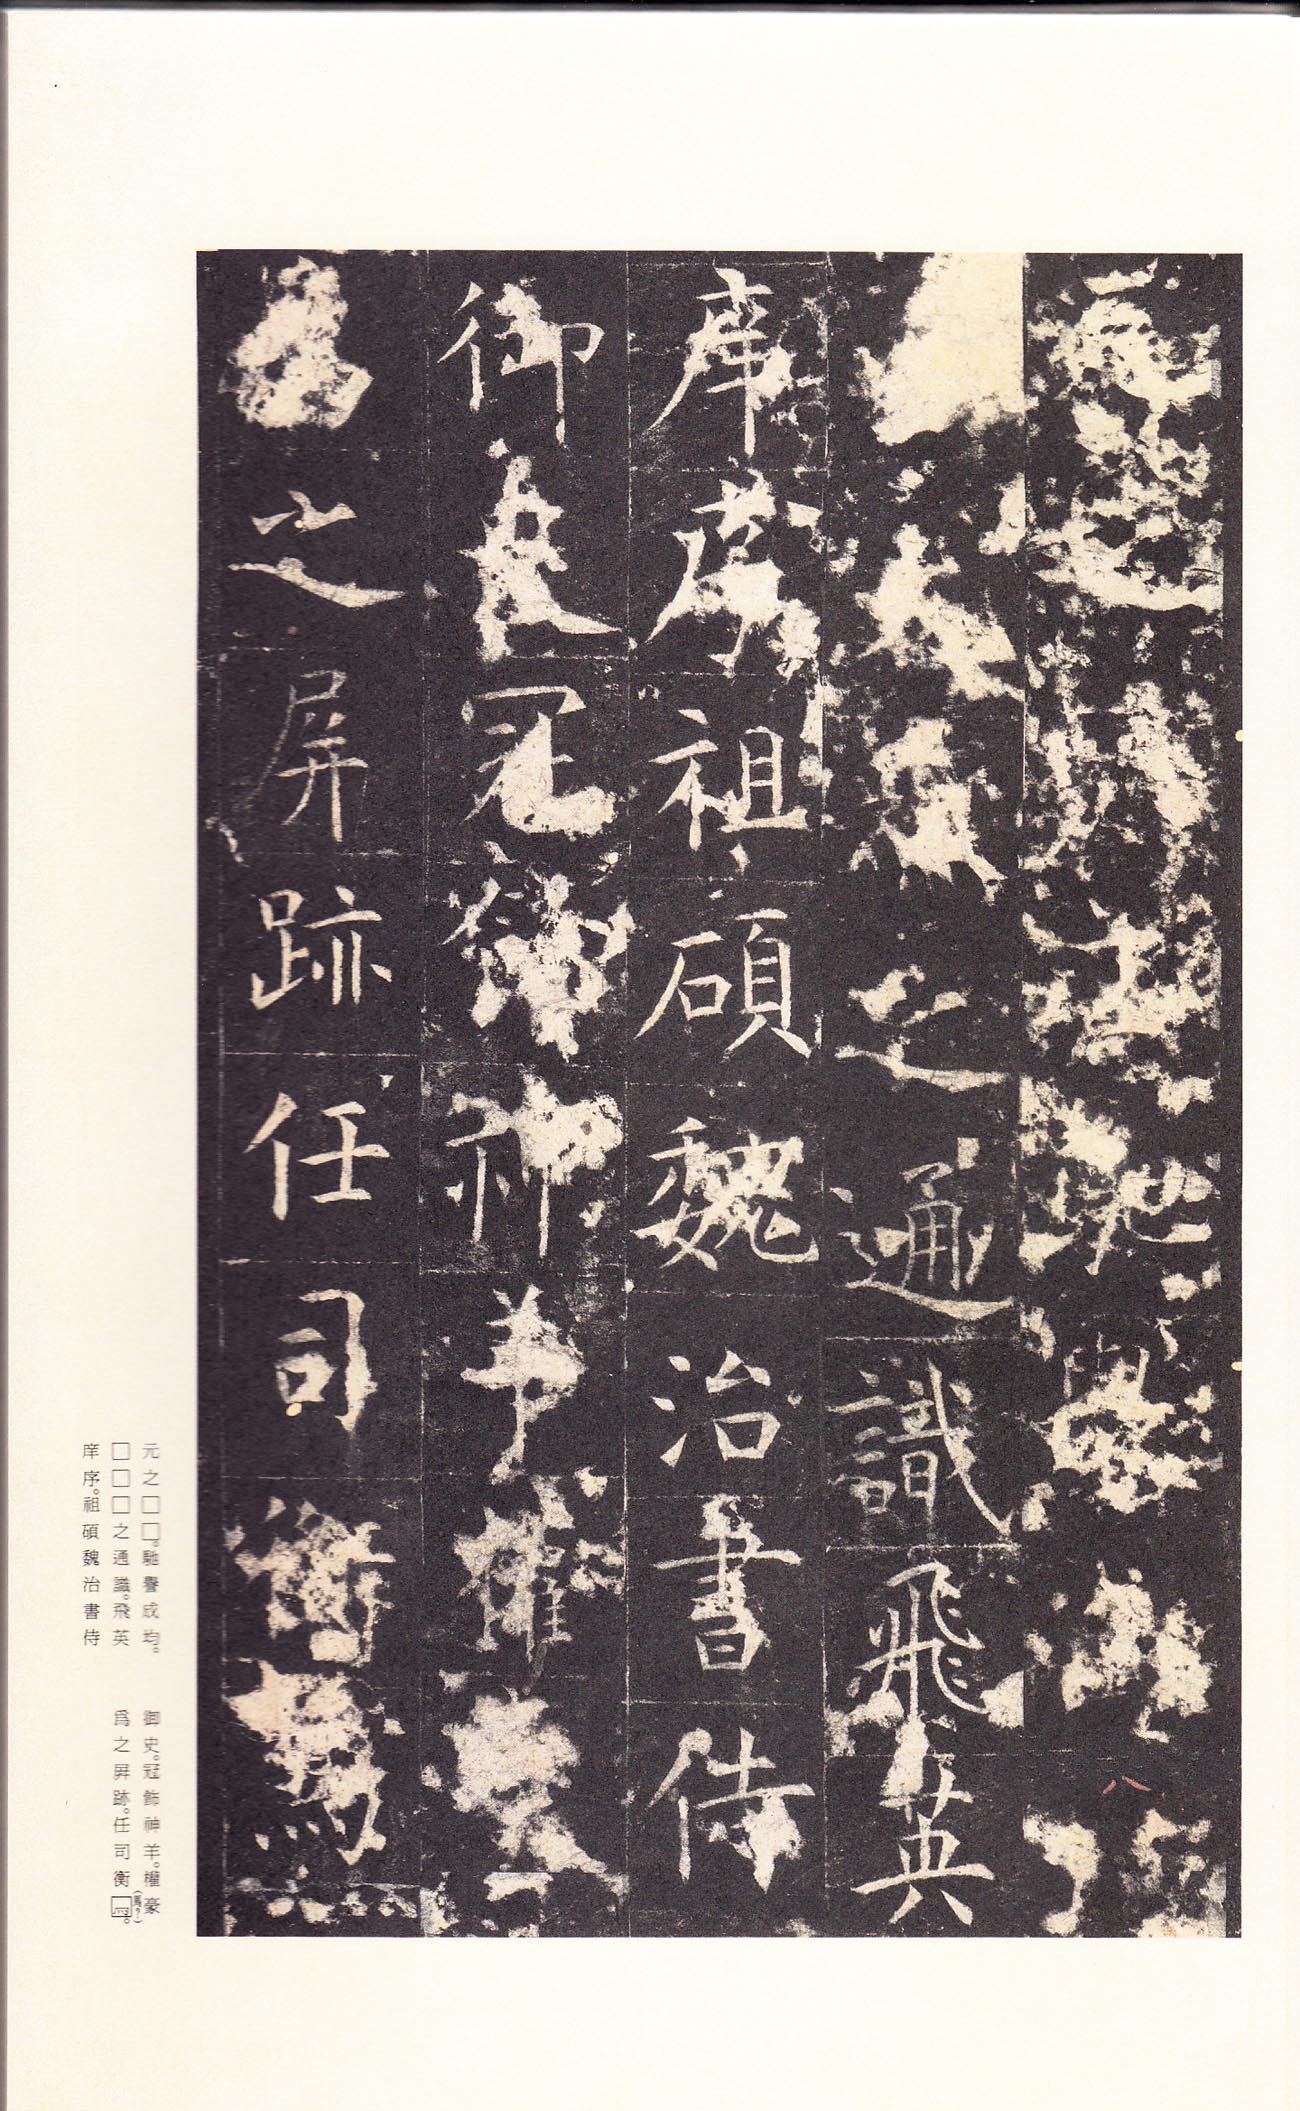 元之□□馳譽成均
□□□之通識飛英
庠序祖碩魏治書侍
御史冠飾神羊權豪
爲之屏跡任司衡
八
元之□□。馳譽成均。
□□□之通識。飛英
庠序。祖碩魏治書侍
御史。冠飾神羊。權豪
爲之屏跡。任司衡